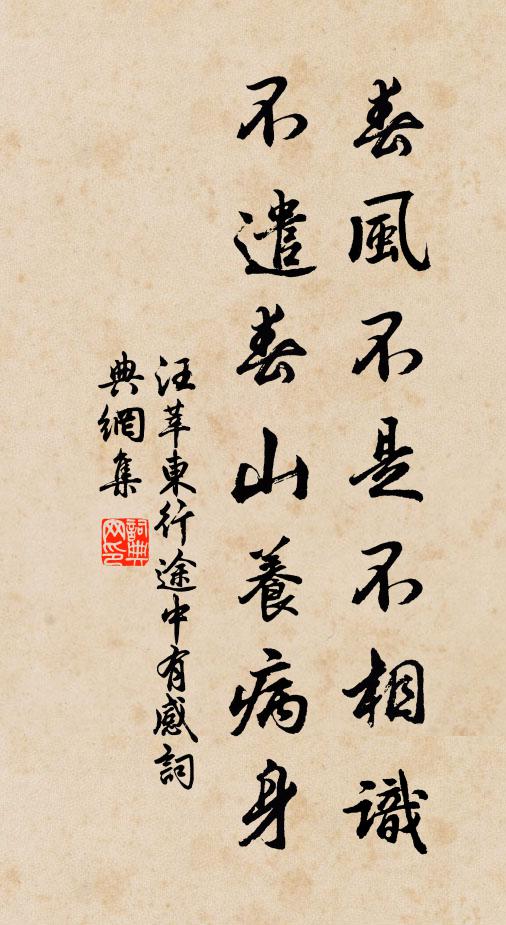 春風不是不相識
不遣春山養病身
汪莘東行途中有感詞
典網集
詞典網印